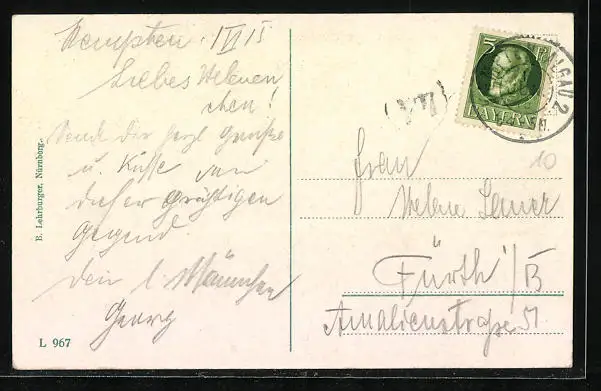 Kempten. 1 VI 15
Liebes Helenen
chen!
Sende Dir herzl Grüße
u. Küsse von
dieser prächtigen
Gegend.
Dein l. Männchen
Georg
L 967
B. Lehrburger, Nürnberg.
5
BAYERN
LGÄU 2
(VII)
10
Frau
Helene
Fürth i/B
Amalienstraße 51